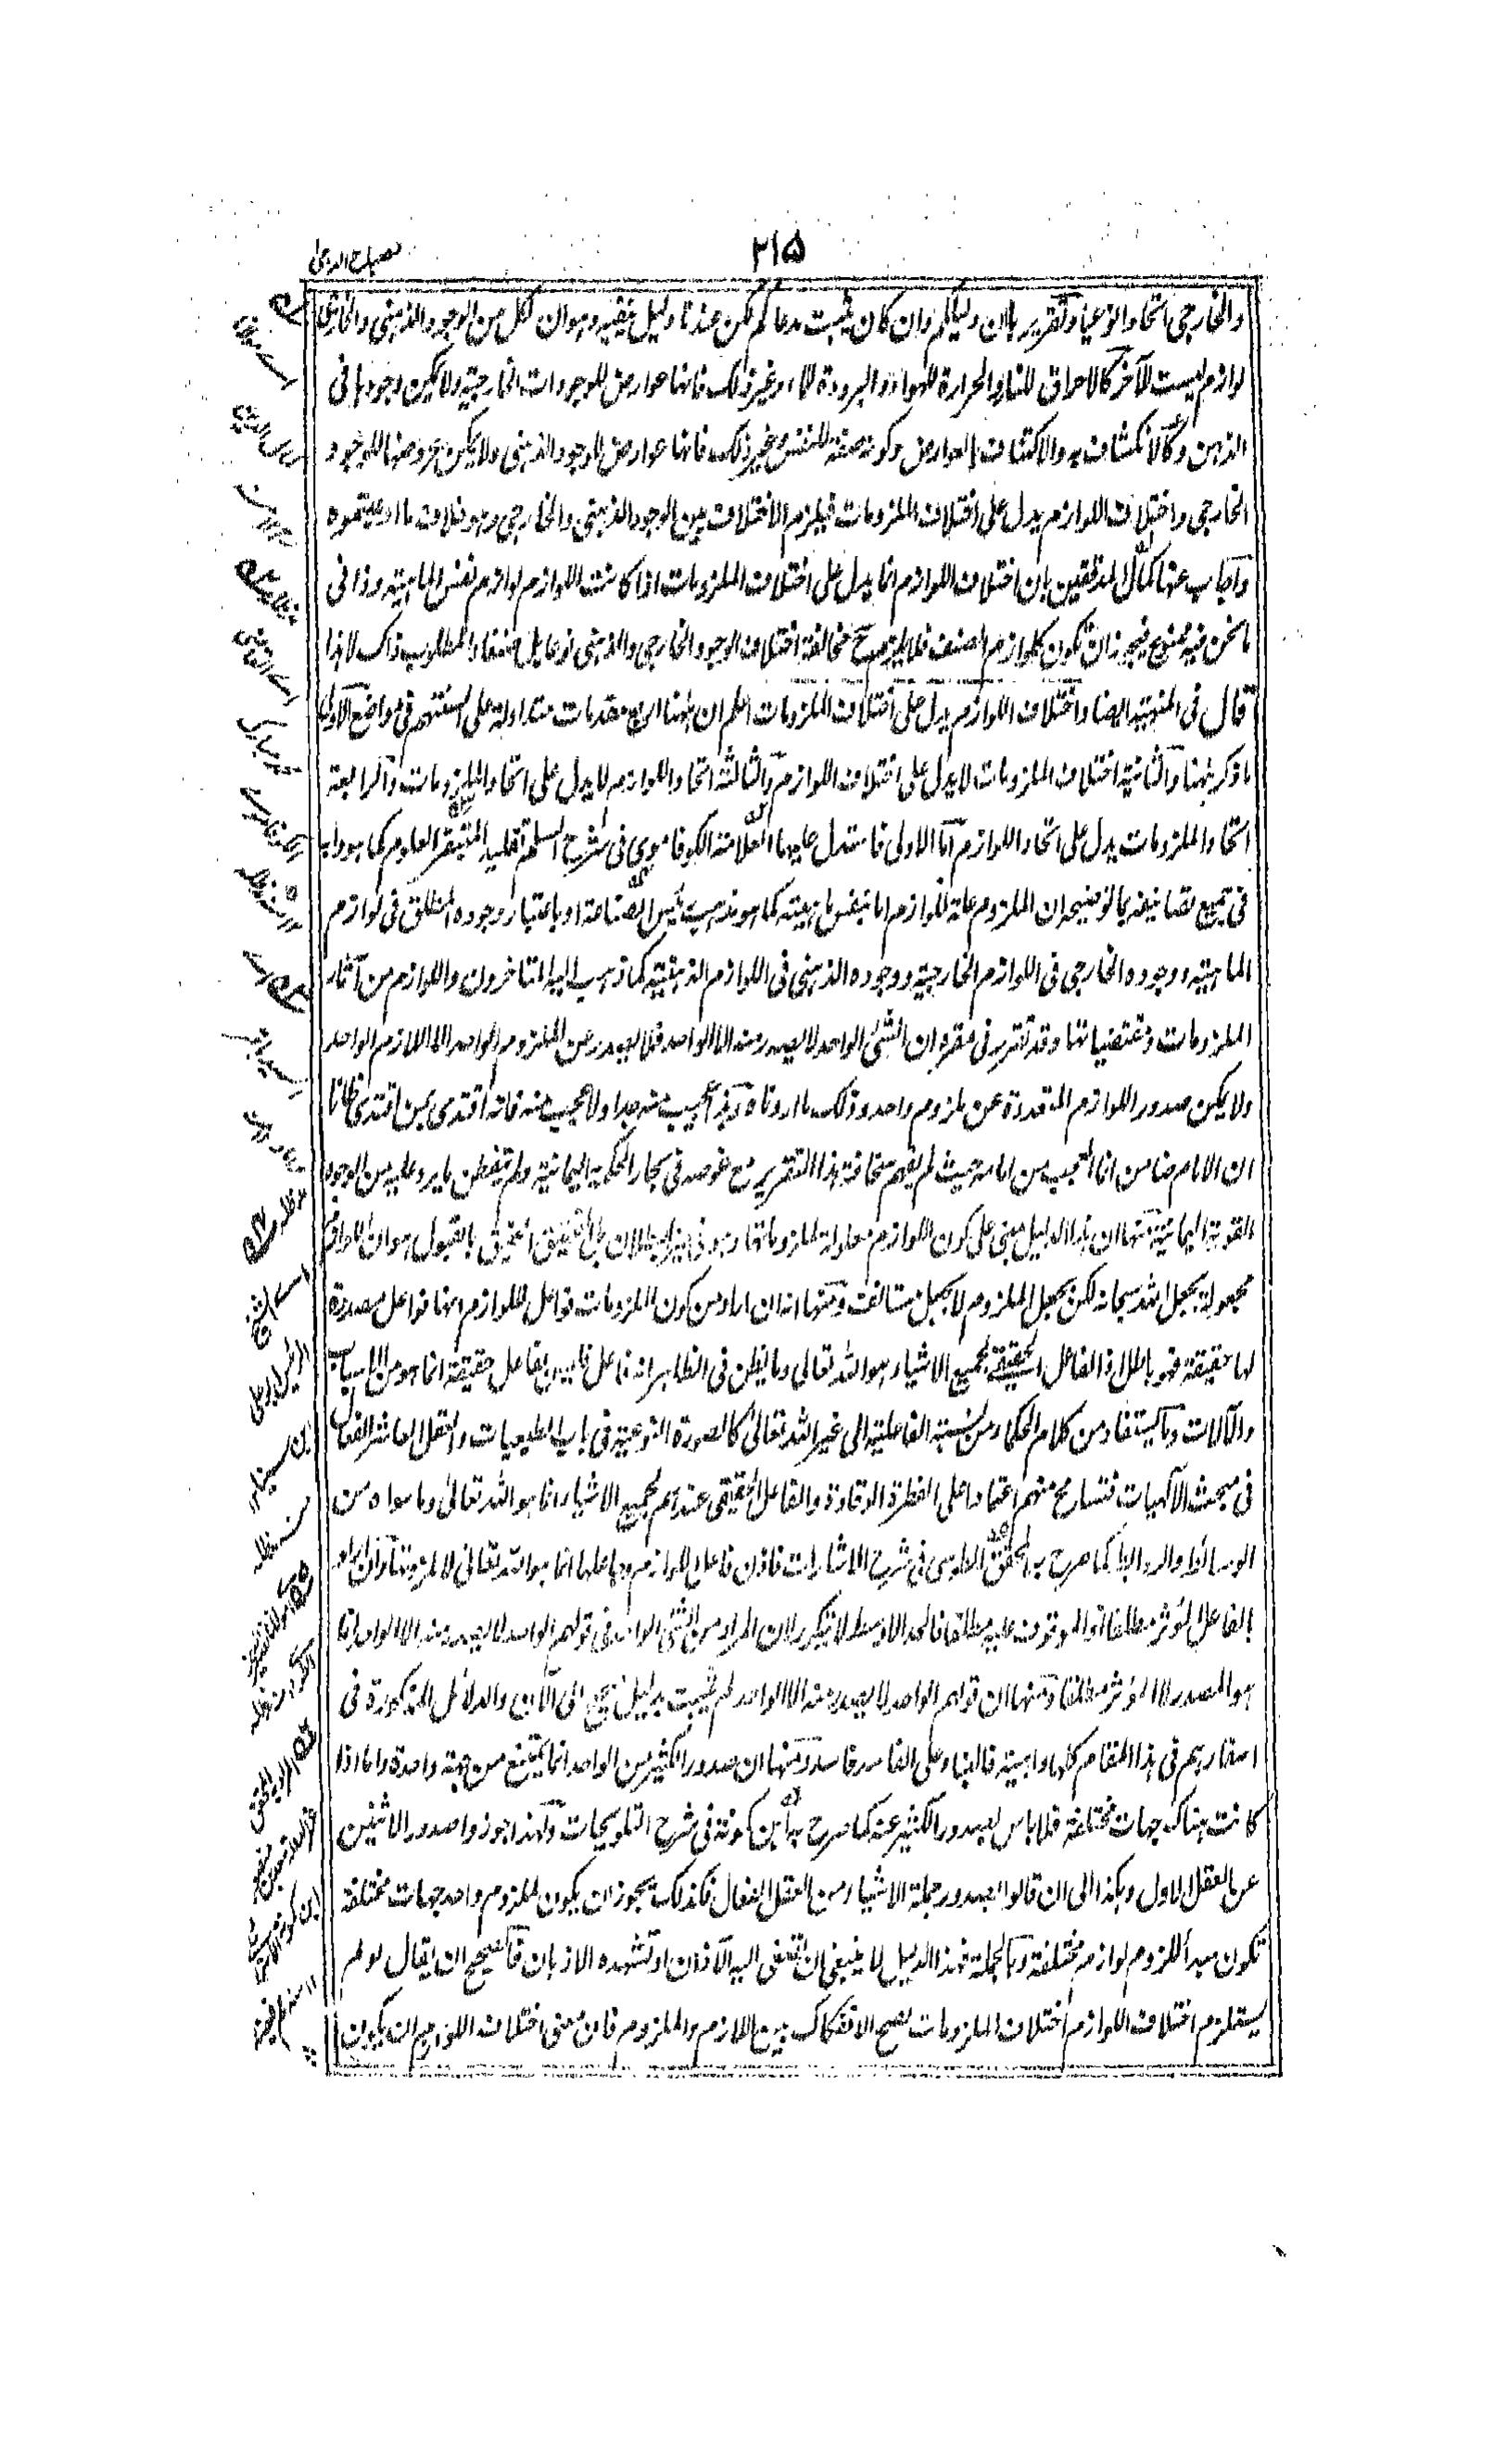 ٢١٥
مصباح الدجى
والخارجي اتحادا نوعيا وتقريره بان دليلكم وان كان يثبت مدعاكم لكن عندنا دليل ينفيه وهو ان لكل من الوجود الذهني والخارجي
لوازم ليست للآخر كالاحراق للنار والحرارة للهواء والبرودة للماء وغير ذلك فانها عوارض للوجودات الخارجية ولا يمكن وجودها في
الذهن وكالانكشاف به والاكتناف بالعوارض وكونه صفة للنفس وغير ذلك فانها عوارض للوجود الذهني ولا يمكن عروضها للوجود
الخارجي واختلاف اللوازم يدل على اختلاف الملزومات فيلزم الاختلاف بين الوجود الذهني والخارجي وهو خلاف ما ادعيتموه
واجاب عنها كمال المدققين بان اختلاف اللوازم انما يدل على اختلاف الملزومات اذا كانت اللوازم لوازم نفس الماهية وذا في
ما نحن فيه ممنوع فيجوز ان تكون كلوازم الصنف فلا يلزم مخالفة اختلاف الوجود الخارجي والذهني نوعا بل صنفا والمطلوب ذاك لا هذا
قال في المنهية ايضا واختلاف اللوازم يدل على اختلاف الملزومات اعلم ان ههنا اربع مقدمات متداولة على السنتهم في مواضع الاولى
ما ذكر ههنا والثانية اختلاف الملزومات لا يدل على اختلاف اللوازم والثالثة اتحاد اللوازم لا يدل على اتحاد الملزومات والرابعة
اتحاد الملزومات يدل على اتحاد اللوازم اما الاولى فاستدل عليها العلامة الكوفاموي في شرح السلم تقليدا لمتبقر العلوم كما هو دابه
في جميع تصانيفه بما توضيحه ان الملزوم علة للوازم اما بنفس ماهيته كما هو مذهب رئيس الصناعة او باعتبار وجوده المطلق في لوازم
الماهية ووجوده الخارجي في اللوازم الخارجية ووجوده الذهني في اللوازم الذهنية كما ذهب اليه المتاخرون واللوازم من آثار
الملزومات ومقتضياتها وقد تقرر في مقره ان الشئ الواحد لا يصدر منه الا الواحد فلا يصدر عن الملزوم الواحد الا اللازم الواحد
ولا يمكن صدور اللوازم المتعددة عن ملزوم واحد وذلك ما اردناه وهذا عجيب منه جدا ولا عجب منه فانه اقتدى بمن اقتدى ظانا
ان الامام ضامن انما العجب من امامه حيث لم يفهم سخافة هذا التقرير مع غوصه في بحار الحكمة اليمانية ولم يتفطن ما يرد عليه من الوجوه
القوية اليمانية منها ان هذا الدليل مبني على كون اللوازم معلولة لملزوماتها وهو في حيز البطلان بل التحقيق الحقيق بالقبول هو ان اللوازم
مجعولة بجعل الله سبحانه لكن بجعل الملزوم لا بجعل مستانف ومنها انه ان اراد من كون الملزومات فواعل للوازم انها فواعل مصدرة
لها حقيقة فهو باطل اذ الفاعل الحقيقي لجميع الاشياء هو الله تعالى وما يظن في الظاهر انه فاعل فليس بفاعل حقيقة انما هو من الاسباب
والآلات وما يستفاد من كلام الحكماء من نسبة الفاعلية الى غير الله تعالى كالصورة النوعية في باب الطبعيات والعقل العاشر الفعال
في مبحث الآلهيات فتسامح منهم اعتمادا على الفطرة الوقادة والفاعل الحقيقي عندهم لجميع الاشياء انما هو الله تعالى وما سواه من
الوسائط والروابط كما صرح به المحقق الطوسي في شرح الاشارات فاذن فاعل اللوازم وجاعلها انما هو الله تعالى لا ملزوماتها وان اراد
بالفاعل المؤثر مطلقا او الموقوف عليه مطلقا فالحد الاوسط لا يتكرر لان المراد من الشئ الواحد في قولهم الواحد لا يصدر منه الا الواحد انما
هو المصدر لا المؤثر مطلقا ومنها ان قولهم الواحد لا يصدر منه الا الواحد لم يثبت بدليل صحيح الى الآن والدلائل المذكورة في
اسفارهم في هذا المقام كلها واهية فالبناء على الفاسد فاسد ومنها ان صدور الكثير من الواحد انما يمتنع من جهة واحدة واما اذا
كانت هناك جهات مختلفة فلا باس بصدور الكثير عنه كما صرح به ابن كمونة في شرح التلويحات ولهذا جوزوا صدور الاثنين
عن العقل الاول وهكذا الى ان قالوا بصدور جملة الاشياء من العقل الفعال فكذلك يجوز ان يكون لملزوم واحد جهات مختلفة
تكون مبدأ للزوم لوازم مختلفة وبالجملة فهذا الدليل لا ينبغي ان تصغى اليه الآذان او تشهده الاذهان فالصحيح ان يقال لو لم
يستلزم اختلاف اللوازم اختلاف الملزومات لصح الانفكاك بين اللازم والملزوم فان معنى اختلاف اللوازم ان يكون